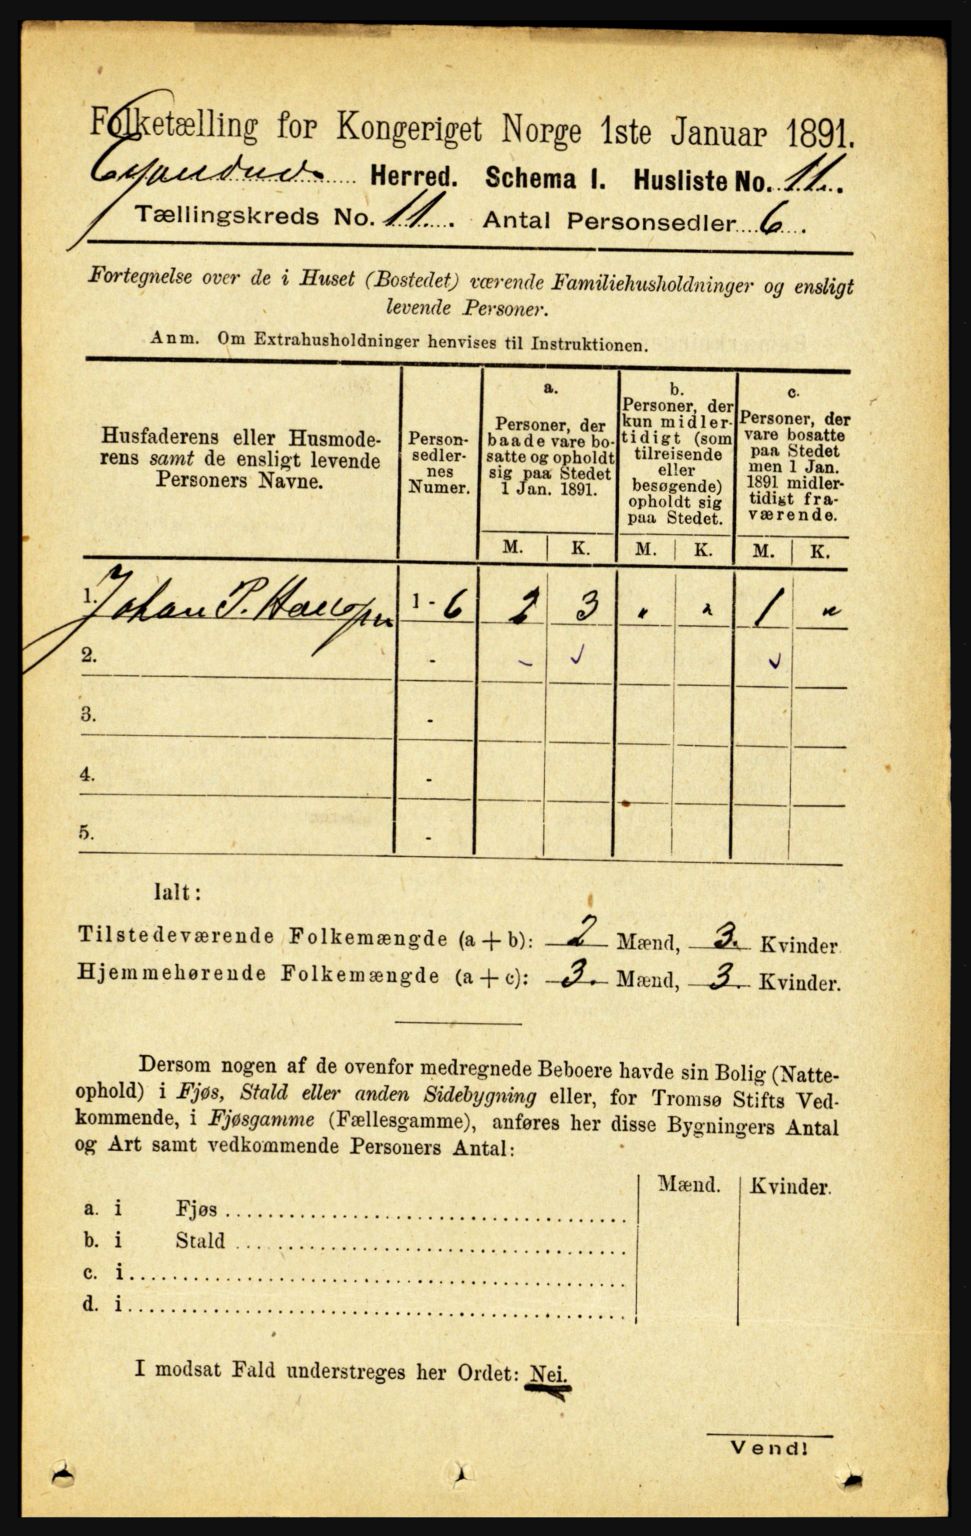 Folketælling for Kongeriget Norge 1ste Januar 1891.
Herred. Schema I. Husliste No. 11.
Tællingskreds No. 11. Antal Personsedler 6.
Fortegnelse over de i Huset (Bostedet) værende Familiehusholdninger og ensligt
levende Personer.
Anm. Om Extrahusholdninger henvises til Instruktionen.
Husfaderens eller Husmode-
rens samt de ensligt levende
Personers Navne.
Person-
sedler-
nes
Numer.
a.
Personer, der
baade vare bo-
satte og opholdt
sig paa Stedet
1 Jan. 1891.
b.
Personer, der
kun midler-
tidigt (som
tilreisende
eller
besøgende)
opholdt sig
paa Stedet.
c.
Personer, der
vare bosatte
paa Stedet
men 1 Jan.
1891 midler-
tidigt fra-
værende.
M. K. M. K. M. K.
1. Johan P. 1 - 6 2 3 " " 1 "
2. -
3. -
4. -
5. -
Ialt:
Tilstedeværende Folkemængde (a + b): 2 Mænd, 3. Kvinder
Hjemmehørende Folkemængde (a + c): 3. Mænd, 3. Kvinder.
Dersom nogen af de ovenfor medregnede Beboere havde sin Bolig (Natte-
ophold) i Fjøs, Stald eller anden Sidebygning eller, for Tromsø Stifts Ved-
kommende, i Fjøsgamme (Fællesgamme), anføres her disse Bygningers Antal
og Art samt vedkommende Personers Antal:
Mænd. Kvinder.
a. i Fjøs
b. i Stald
c. i
d. i
I modsat Fald understreges her Ordet: Nei.
Vend!